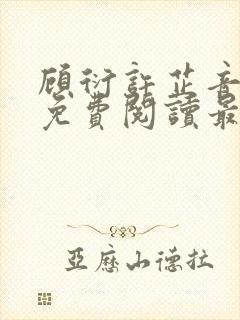 顾衍許芷音
免費閱讀最
亞歷山德拉